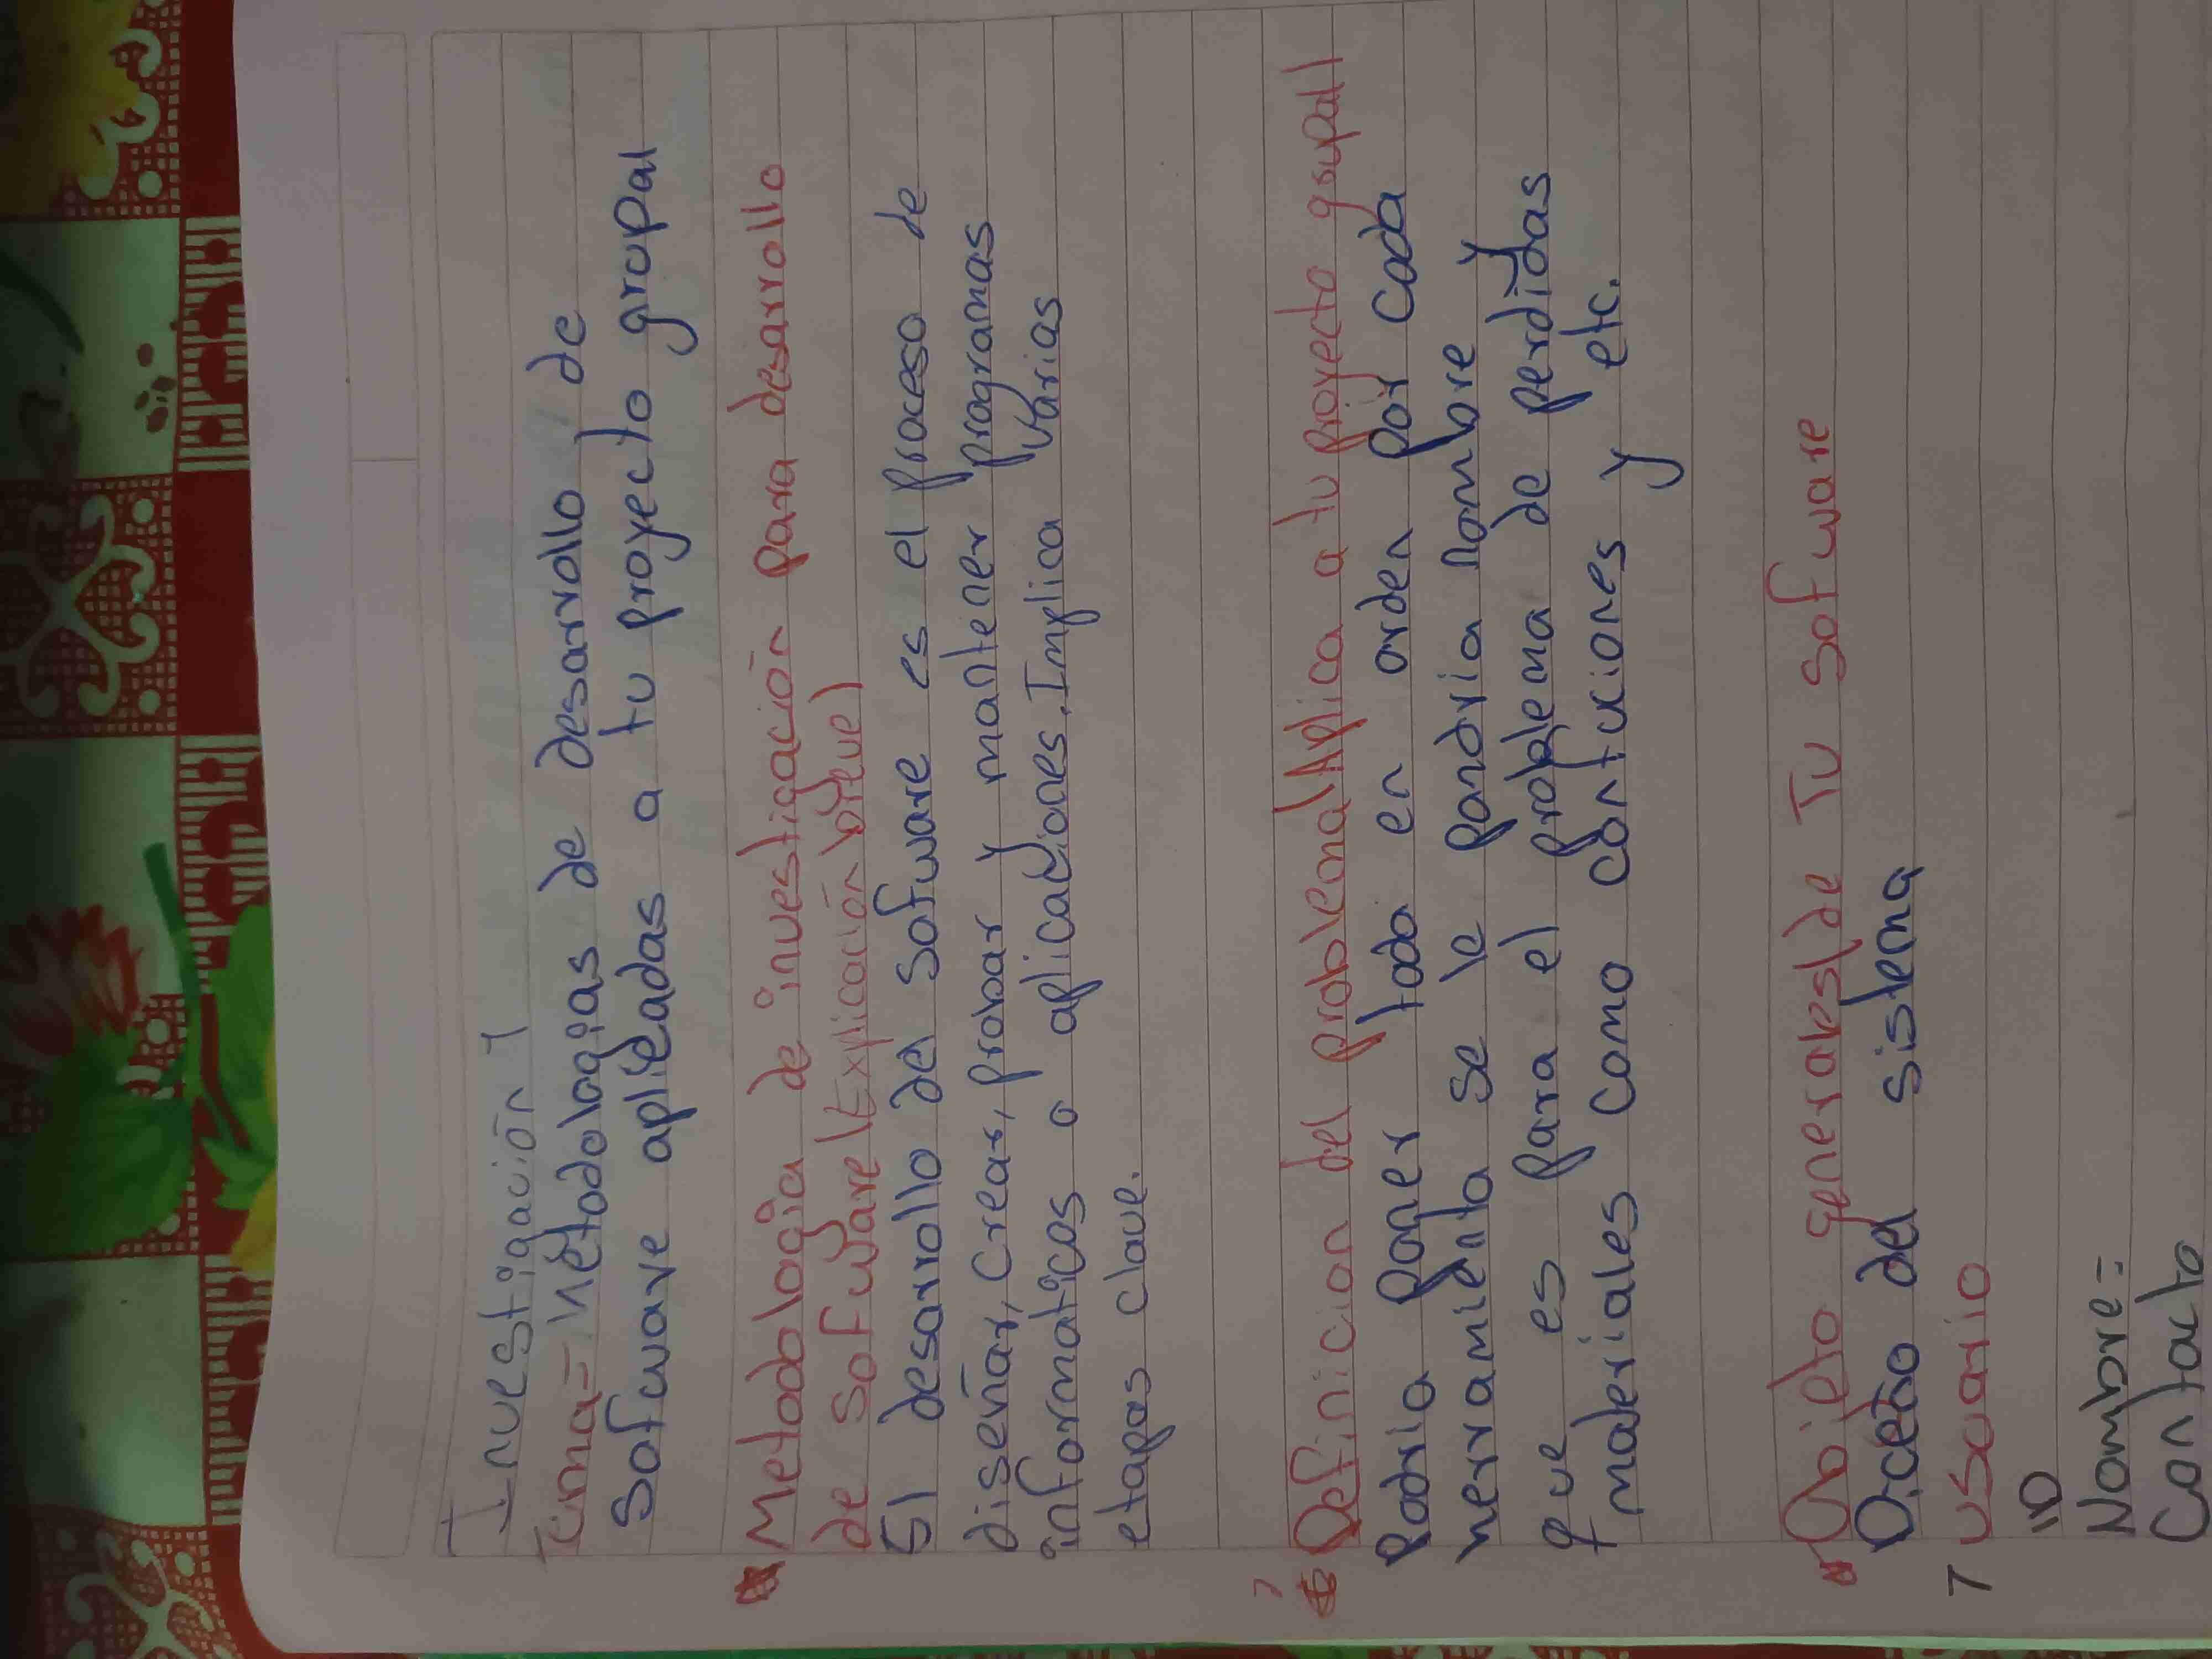 Investigación 1
Tema= Metodologias de desarrollo de
Sofware aplicadas a tu proyecto grupal
Metodologia de investigación para desarrollo
de sofware (Explicación breve)
El desarrollo del sofware es el proceso de
diseñar, Crear, probar y mantener programas
informaticos o aplicaciones. Implica varias
etapas clave.
Definicion del problema (Aplica a tu proyecto grupal)
Podria poner todo en orden por cada
herramienta se le pondria nombre y
que es para el problema de perdidas
materiales como confuciones y etc.
Objeto generales (de Tu Sofware
Diceño del sistema
1 usuario
ID
Nombre=
Contacto